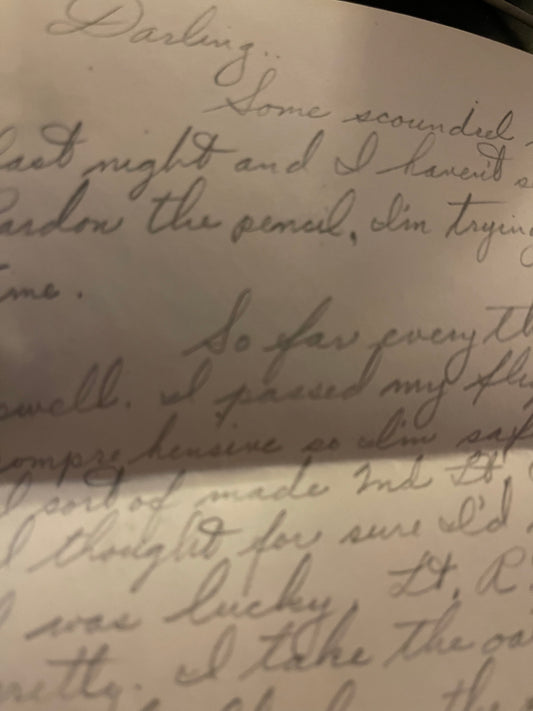 Darling..
Some scoundrel
last night and I haven't s
Pardon the pencil, I'm trying
me.
So far everyth
swell. I passed my fli
comprehensive so I'm saf
I sort of made 2nd Lt.
I thought for sure I'd
I was lucky. Lt. R
pretty. I take the oa
the